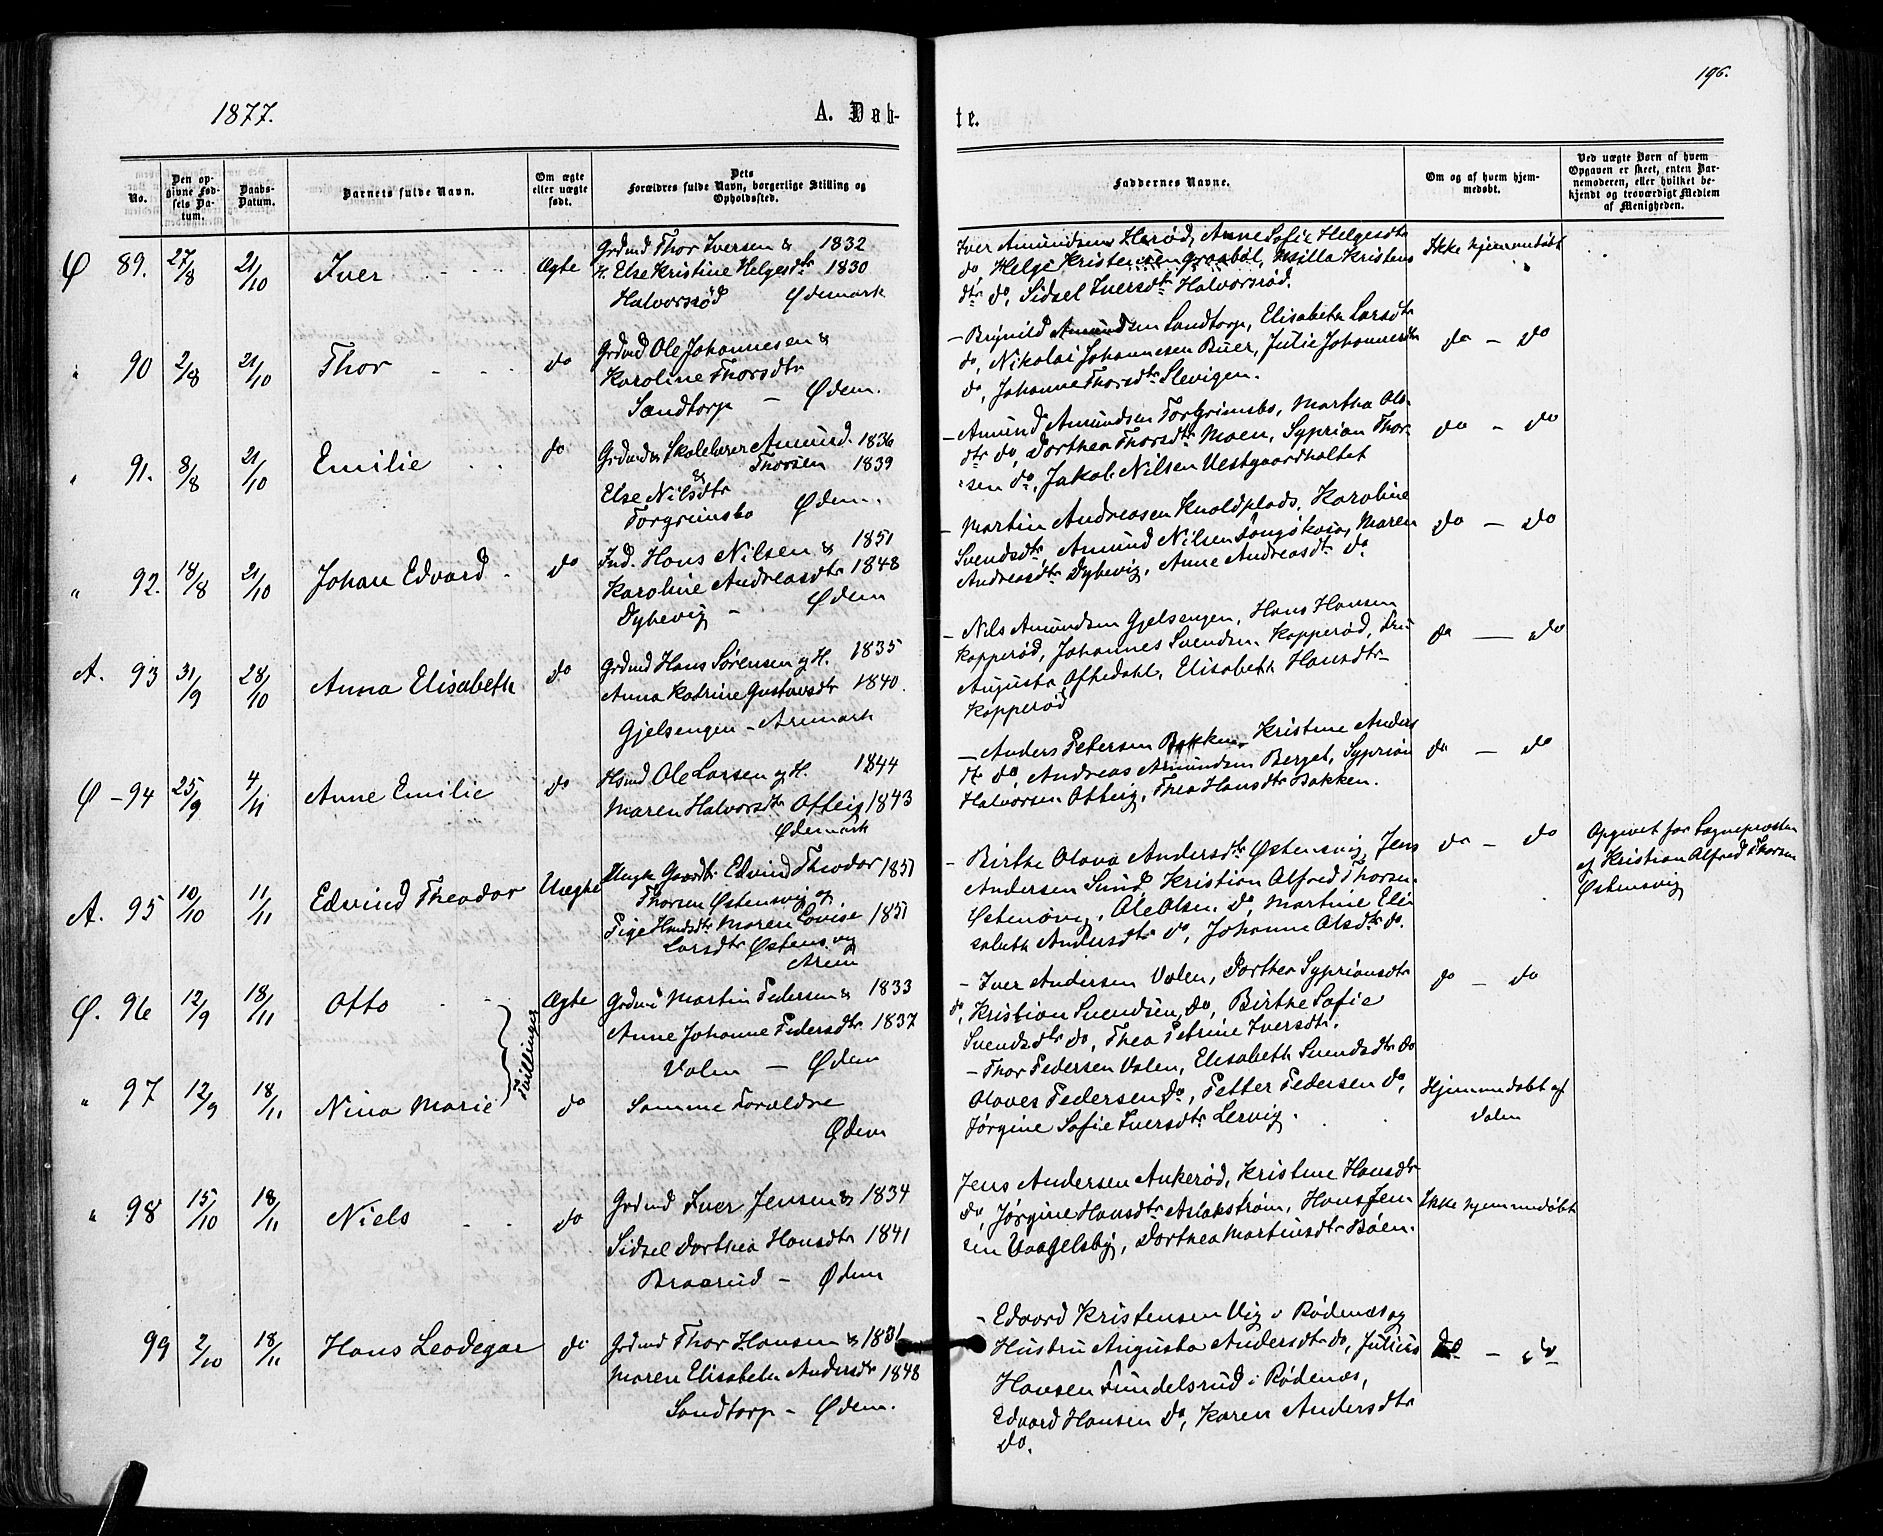 1877.
A. Døb-
te.
196.
No.
Den op-
givne Fød-
sels Da-
tum.
Daabs-
Datum.
Barnets fulde Navn.
Om ægte
eller uægte
født.
Dets
Forældres fulde Navn, borgerlige Stilling og
Opholdssted.
Faddernes Navne.
Om og af hvem hjem-
medøbt.
Ved uægte Børn af hvem
Opgaven er skeet, enten Bar-
nemoderen, eller hvilket be-
kjendt og troværdigt Medlem
af Menigheden.
Ø 89. 27/8 21/10 Iver Ægte
Grdmd Thor Iversen & 1832
H. Else Kristine Helgesdtr 1830
Halvorsrød Ødemark
Iver Amundsen Herød, Anne Sofie Helgesdtr
do, Helge Kristensen Graabøl, Milla Kristens
dtr do, Sidsel Iversdtr Halvorsrød.
Ikke hjemmedøbt
" 90 2/8 21/10 Thor do
Grdmd Ole Johannesen &
Karoline Thorsdtr
Sandtorp - Ødem.
- Brynild Amundsen Sandtorp, Elisabeth Larsdtr
do, Nikolai Johannesen Buer, Julie Johannesdtr
do, Johanne Thorsdtr Slevigen.
do - do
" 91. 8/8 21/10 Emilie do
Grdmd Skolelærer Amund. 1836
Thorsen 1839
&
Else Nilsdtr
Torgrimsbo Ødem.
- Amund Amundsen Torgrimsbo, Martha Ols-
dtr do, Dorthea Thorsdtr Moen, Syprian Thor-
sen do, Jakob Nilsen Vestgaardholtet
do - do
" 92. 18/8 21/10 Johan Edvard do
Ind. Hans Nilsen & 1851
Karoline Andreasdtr 1848
Dybevig - Ødem
- Martin Andreasen Knoldplads, Karoline
Svendsdtr, Amund Nilsen Maren
Andreasdtr Dybevig, Anne Andreasdtr do
do - do
A. 93 31/9 28/10 Anna Elisabeth do
Grdmd Hans Sørensen og H. 1835
Anna Katrine Gustavsdtr 1840.
Gjelsengen - Aremark
- Nils Amundsen Gjelsengen, Hans Hansen
Kopperød, Johannes Svendsen Kopperød,
Augusta Oftedahl, Elisabeth Hansdtr
Kopperød
do - do
Ø - 94 25/9 4/11 Anne Emilie do
Hsmd Ole Larsen og H. 1844
Maren Halvorsdtr Ofteig 1843
Ødemark
- Anders Petersen Bakken, Kristine Anders
dtr do Andreas Amundsen Berget, Syprian
Halvorsen Ofteig, Thea Hansdtr Bakken.
do - do
A. 95 10/10 11/11 Edvind Theodor Uægte
Ungk Gaardbr Edvind Theodor 1851
Thorsen Østensvig og
Pige Maren Lovise 1851
Larsdtr Østensvig
Arem
- Birthe Olava Andersdtr Østensvig, Jens
Andersen Sund, Kristian Alfred Thorsen
Østensvig, Ole Olsen, do, Martine Eli-
sabeth Andersdtr do, Johanne Olsdtr do.
do - do
Opgivet for Sogneprosten
af Kristian Alfred Thorsen
Østensvig
Ø. 96 12/9 18/11 Otto Ægte
Grdmd Martin Pedersen & 1833
Anne Johanne Pedersdtr 1837
Volen - Ødem
- Iver Andersen Volen, Dorthea Sypriansdtr
do, Kristian Svendsen do, Birthe Sofie
Svendsdtr do, Thea Petrine Iversdtr.
do - do
Tvillinger
" 97 12/9 18/11 Nina Marie do
Samme Forældre
Ødem
- Thor Pedersen Volen, Elisabeth Svendsdtr do
Olaves Pedersen do, Petter Pedersen do,
Jørgine Sofie Iversdtr Lervig.
Hjemmedøbt af
Volen
" 98 15/10 18/11 Niels do
Grdmd Iver Jensen & 1834
Sidsel Dorthea Hansdtr 1841
Braarud - Ødem
Jens Andersen Ankerød, Kristine Hansdtr
do, Jørgine Hansdtr Aslakstrøm, Hans Jen-
sen Vaagelsby, Dorthea Martinsdtr Bøen.
Ikke hjemmedøbt
99 2/10 18/11 Hans Leodegar do
Grdmd Thor Hansen & 1831
Maren Elisabeth Andersdtr 1848
Sandtorp - Ødem.
- Edvard Kristensen Vig i Rødenæs og
Hustru Augusta Andersdtr do, Julius
Hansen Fundelsrud i Rødenæs,
Edvard Hansen do, Karen Andersdtr
do.
do - do